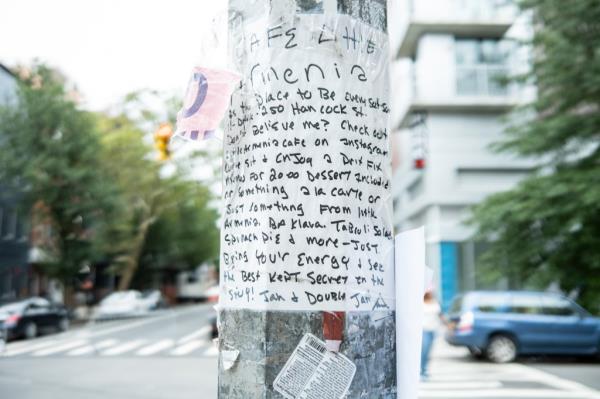 CAFE Little
Armenia
is the Place to Be every Sat-Sun
250 Hancock St.
Don't Believe me? Check out
Armenia cafe on Instagram
sit & Enjoy a
for 20.00 Dessert Included
or Something a la carte or
Just Something From little
Armenia. Baklava. Tabouli Salad
Spinach Pie & more-Just
Bring Your Energy & See
the Best Kept Secret in the
Jah & Double Jah